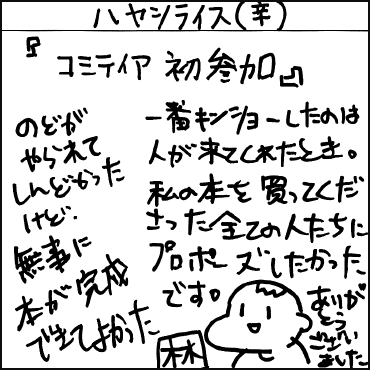 ハヤシライス(辛)
『コミティア 初参加』
のどが
やられて
しんどかった
けど、
無事に
本が完成
できてよかった
一番キンチョーしたのは
人が来てくれたとき。
私の本を買ってくだ
さった全ての人たちに
プロポーズしたかった
です。
ありが
とう
ござい
ました
林